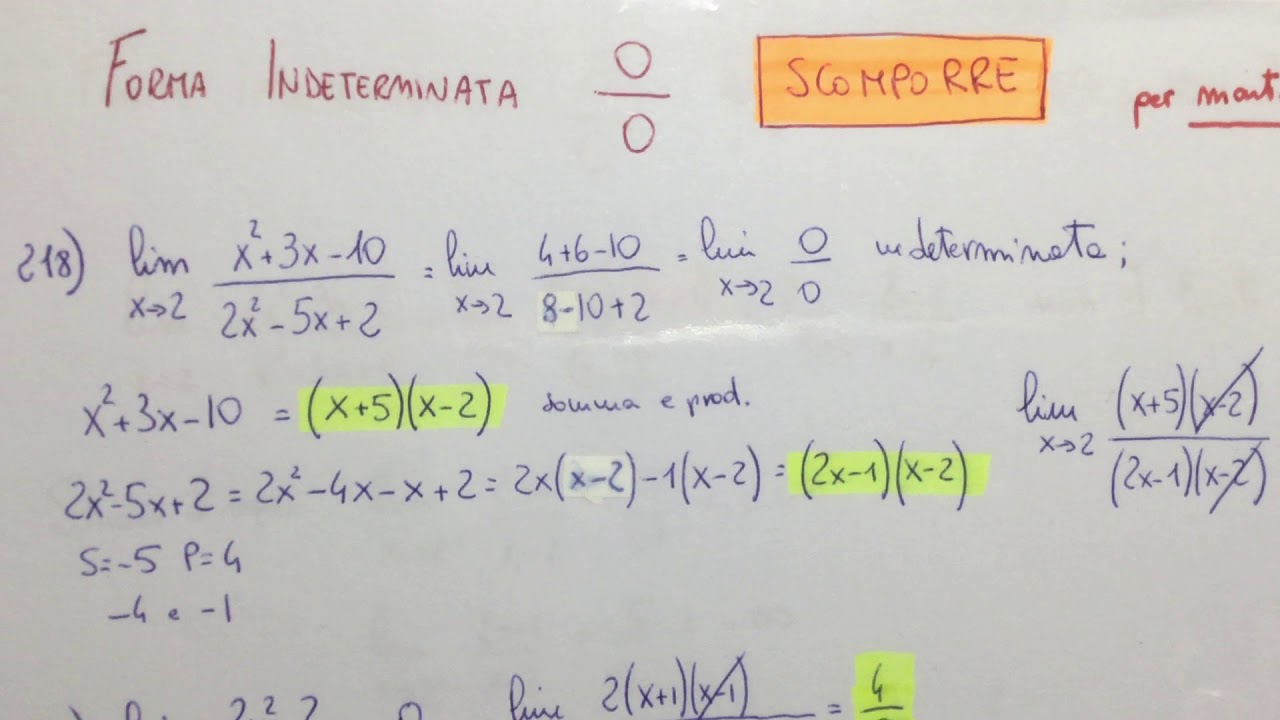 FORMA INDETERMINATA 0/0 SCOMPORRE per
218) lim x→2 (x²+3x-10)/(2x²-5x+2) = lim x→2 (4+6-10)/(8-10+2) = lim x→2 0/0 indeterminata;
x²+3x-10 = (x+5)(x-2) somma e prod.
lim x→2 (x+5)(x-2)/(2x-1)(x-2)
2x²-5x+2 = 2x²-4x-x+2 = 2x(x-2)-1(x-2) = (2x-1)(x-2)
S=-5 P=4
-4 e -1
lim 2(x+1)(x-1) = 4